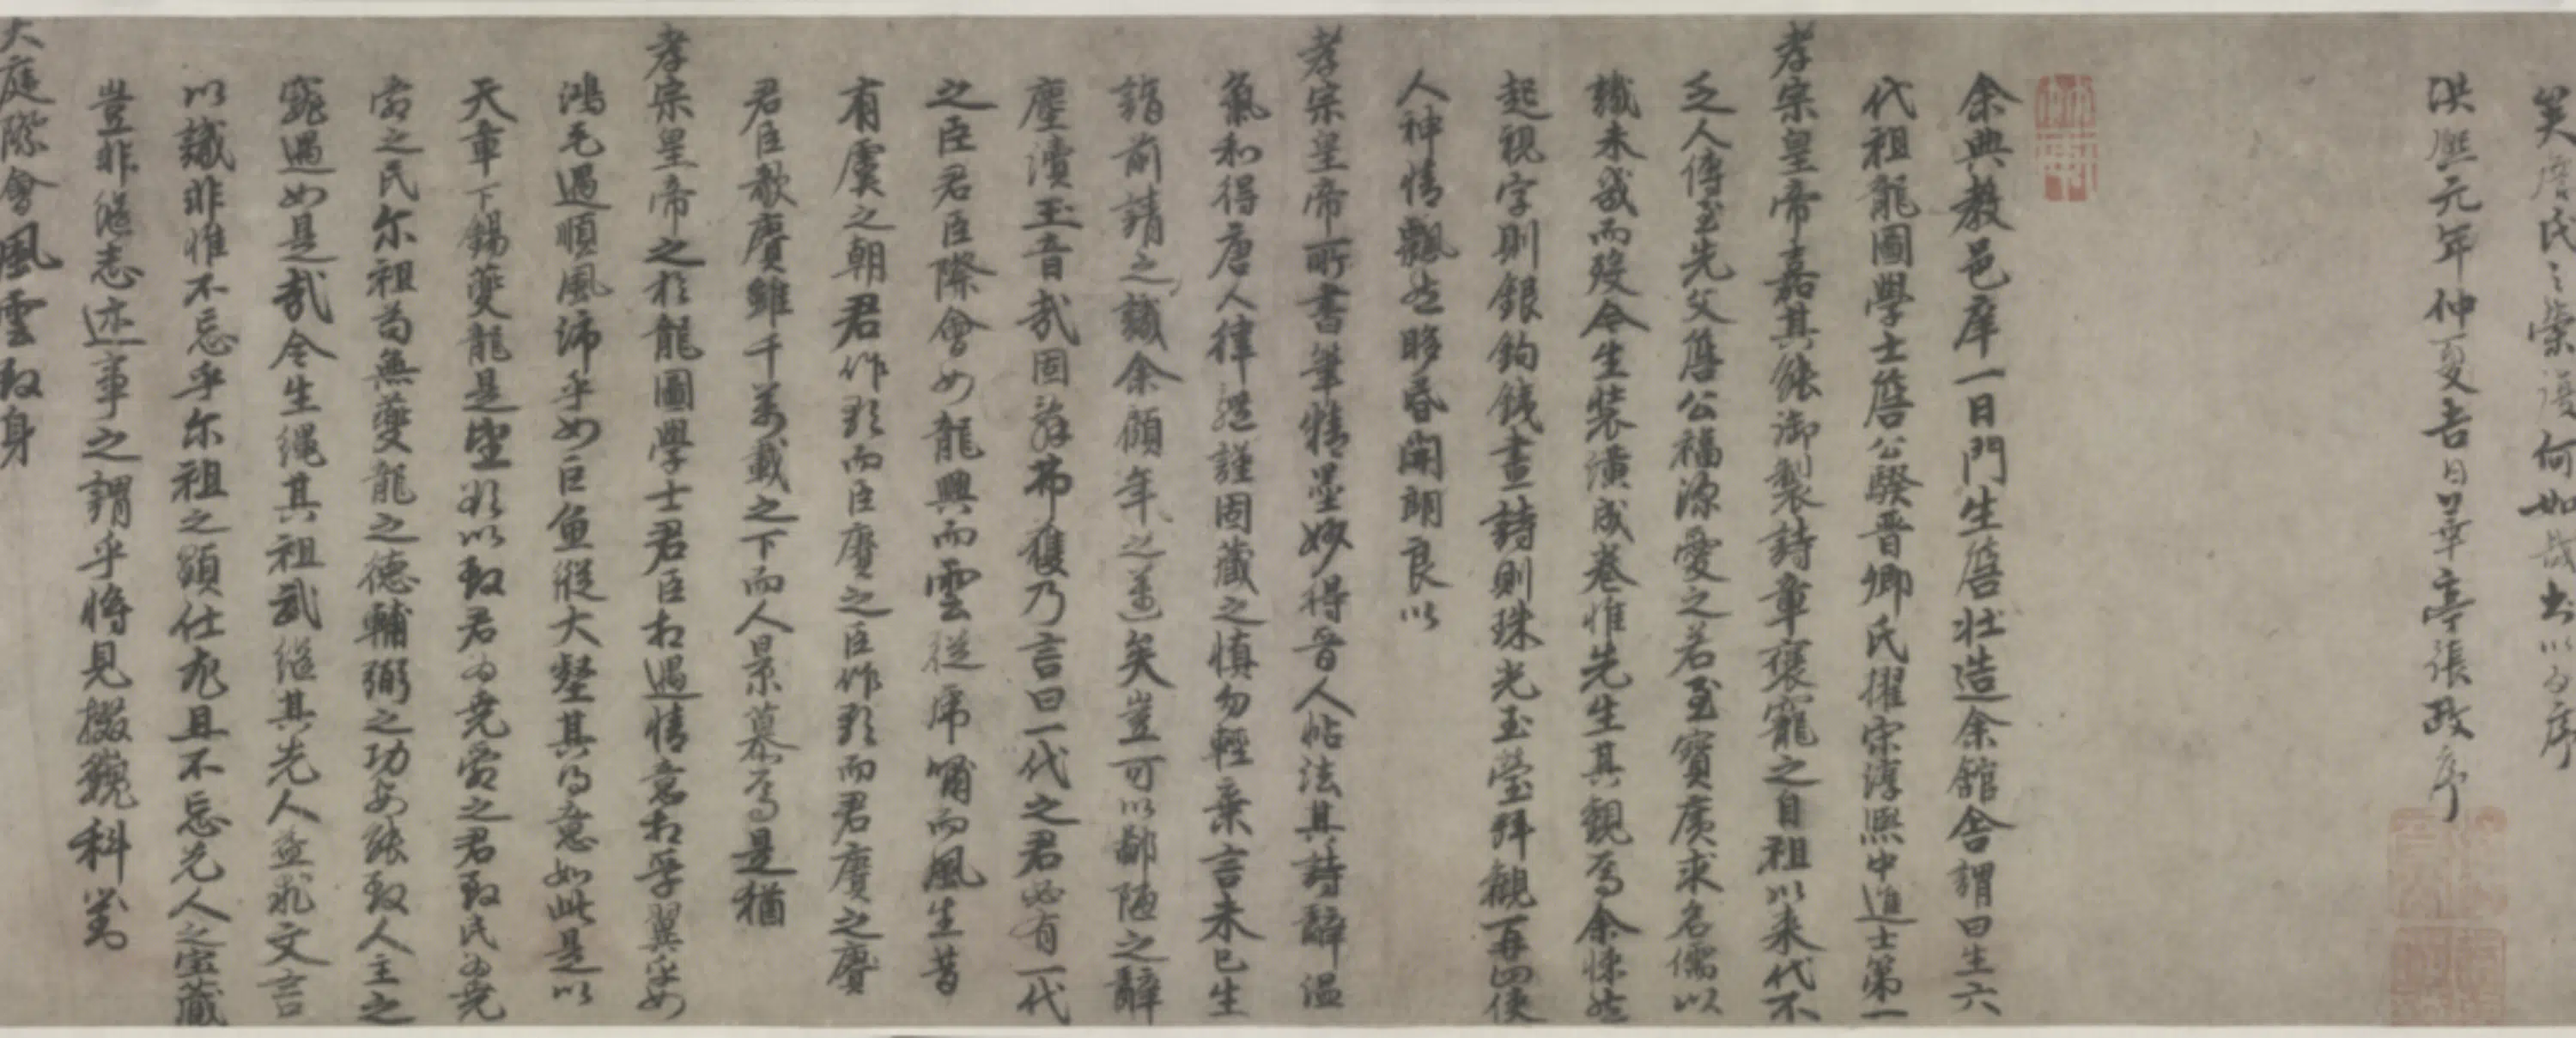 矣詹氏之榮遇何如哉書以為序
洪熙元年仲夏吉日草亭張政序
余典教邑庠一日門生詹壯造余館舍謂曰生六
代祖龍圖學士詹公騤晉卿氏擢宋淳熙中進士第一
孝宗皇帝嘉其能御製詩章褒寵之自祖以來代不
乏人傳至先父詹公福源愛之若至寶廣求名儒以
識未幾而歿今生裝潢成卷惟先生其觀焉余悚然
起視字則銀鉤鐵畫詩則珠光玉瑩拜觀再四使
人神情飄然眵昏開朗良以
孝宗皇帝所書筆精墨妙得晉人帖法其詩辭溫
氣和得唐人律體謹固藏之慎勿輕棄言未已生
詣前請之識余顧年之邁矣豈可以鄙陋之辭
塵瀆玉音哉固辭弗獲乃言曰一代之君必有一代
之臣君臣際會如龍興而雲從虎嘯而風生昔
有虞之朝君作歌而臣賡之臣作歌而君賡之賡
君臣歌賡雖千萬載之下而人景慕焉是猶
孝宗皇帝之於龍圖學士君臣相遇情意相孚翼乎如
鴻毛遇順風沛乎如巨魚縱大壑其得意如此是以
天章下錫夔龍是望欲以致君為堯舜之君致民為堯
舜之民尔祖苟無夔龍之德輔弼之功安能致人主之
寵遇如是哉今生繩其祖武繼其先人並求文言
以識非惟不忘乎尔祖之顯仕尤且不忘先人之寶藏
豈非繼志述事之謂乎將見掇巍科萬
大庭際會風雲致身